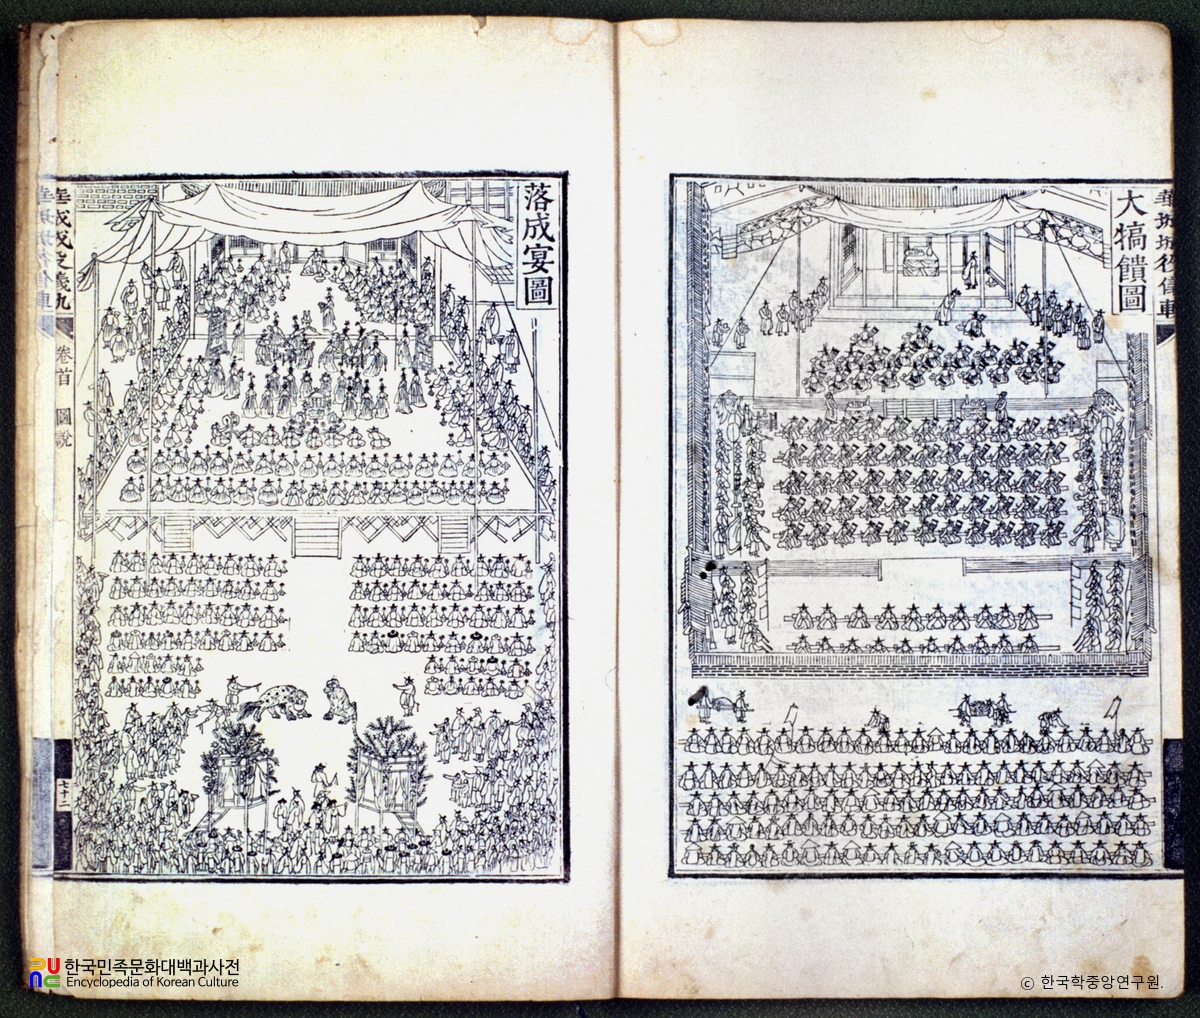 大犒饋圖
華城城役儀軌
落成宴圖
華城城役儀軌
卷首
圖說
七十二
한국민족문화대백과사전
Encyclopedia of Korean Culture
© 한국학중앙연구원.